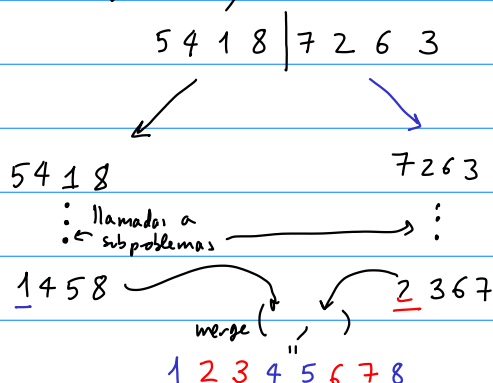 5 4 1 8 | 7 2 6 3
5 4 1 8
7 2 6 3
llamadas a
subproblemas
1 4 5 8
2 3 6 7
merge ( , )
"
1 2 3 4 5 6 7 8